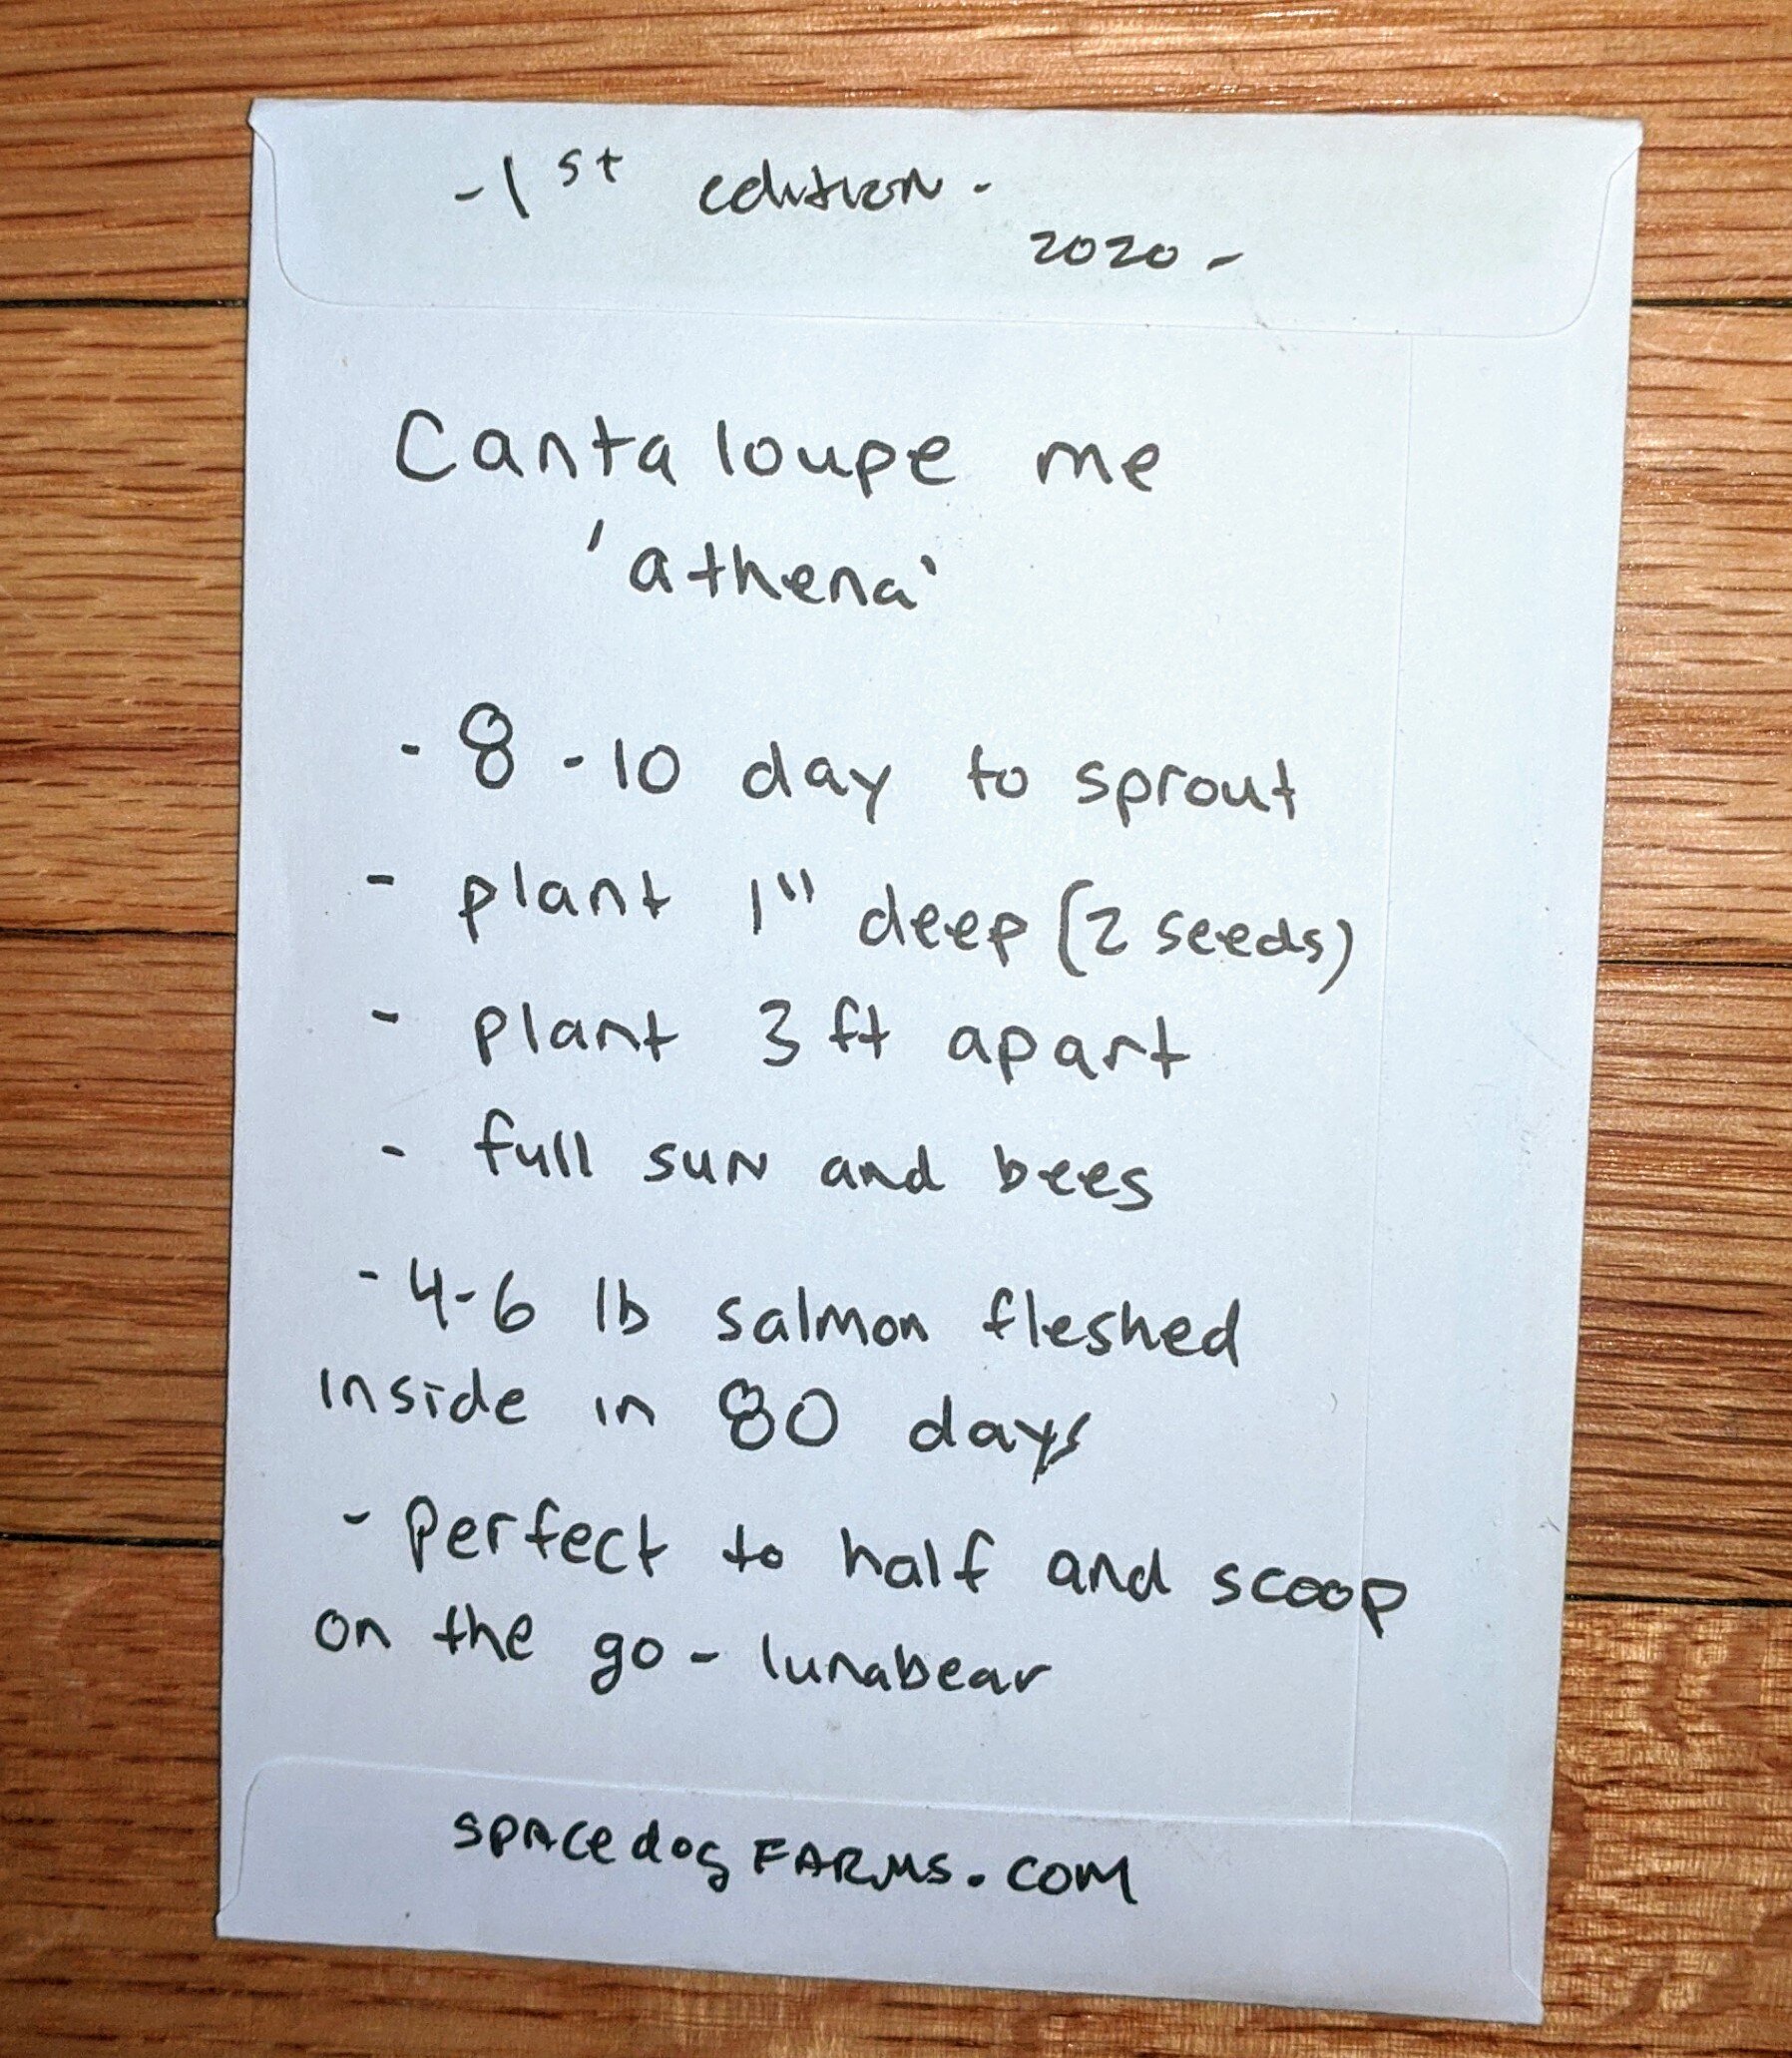 -1st edition-
2020-
Cantaloupe me
'athena'
- 8-10 day to sprout
- plant 1" deep (2 seeds)
- plant 3 ft apart
- full sun and bees
- 4-6 lb salmon fleshed
inside in 80 days
- Perfect to half and scoop
on the go - lunabear
SPACedogFARMS.COM